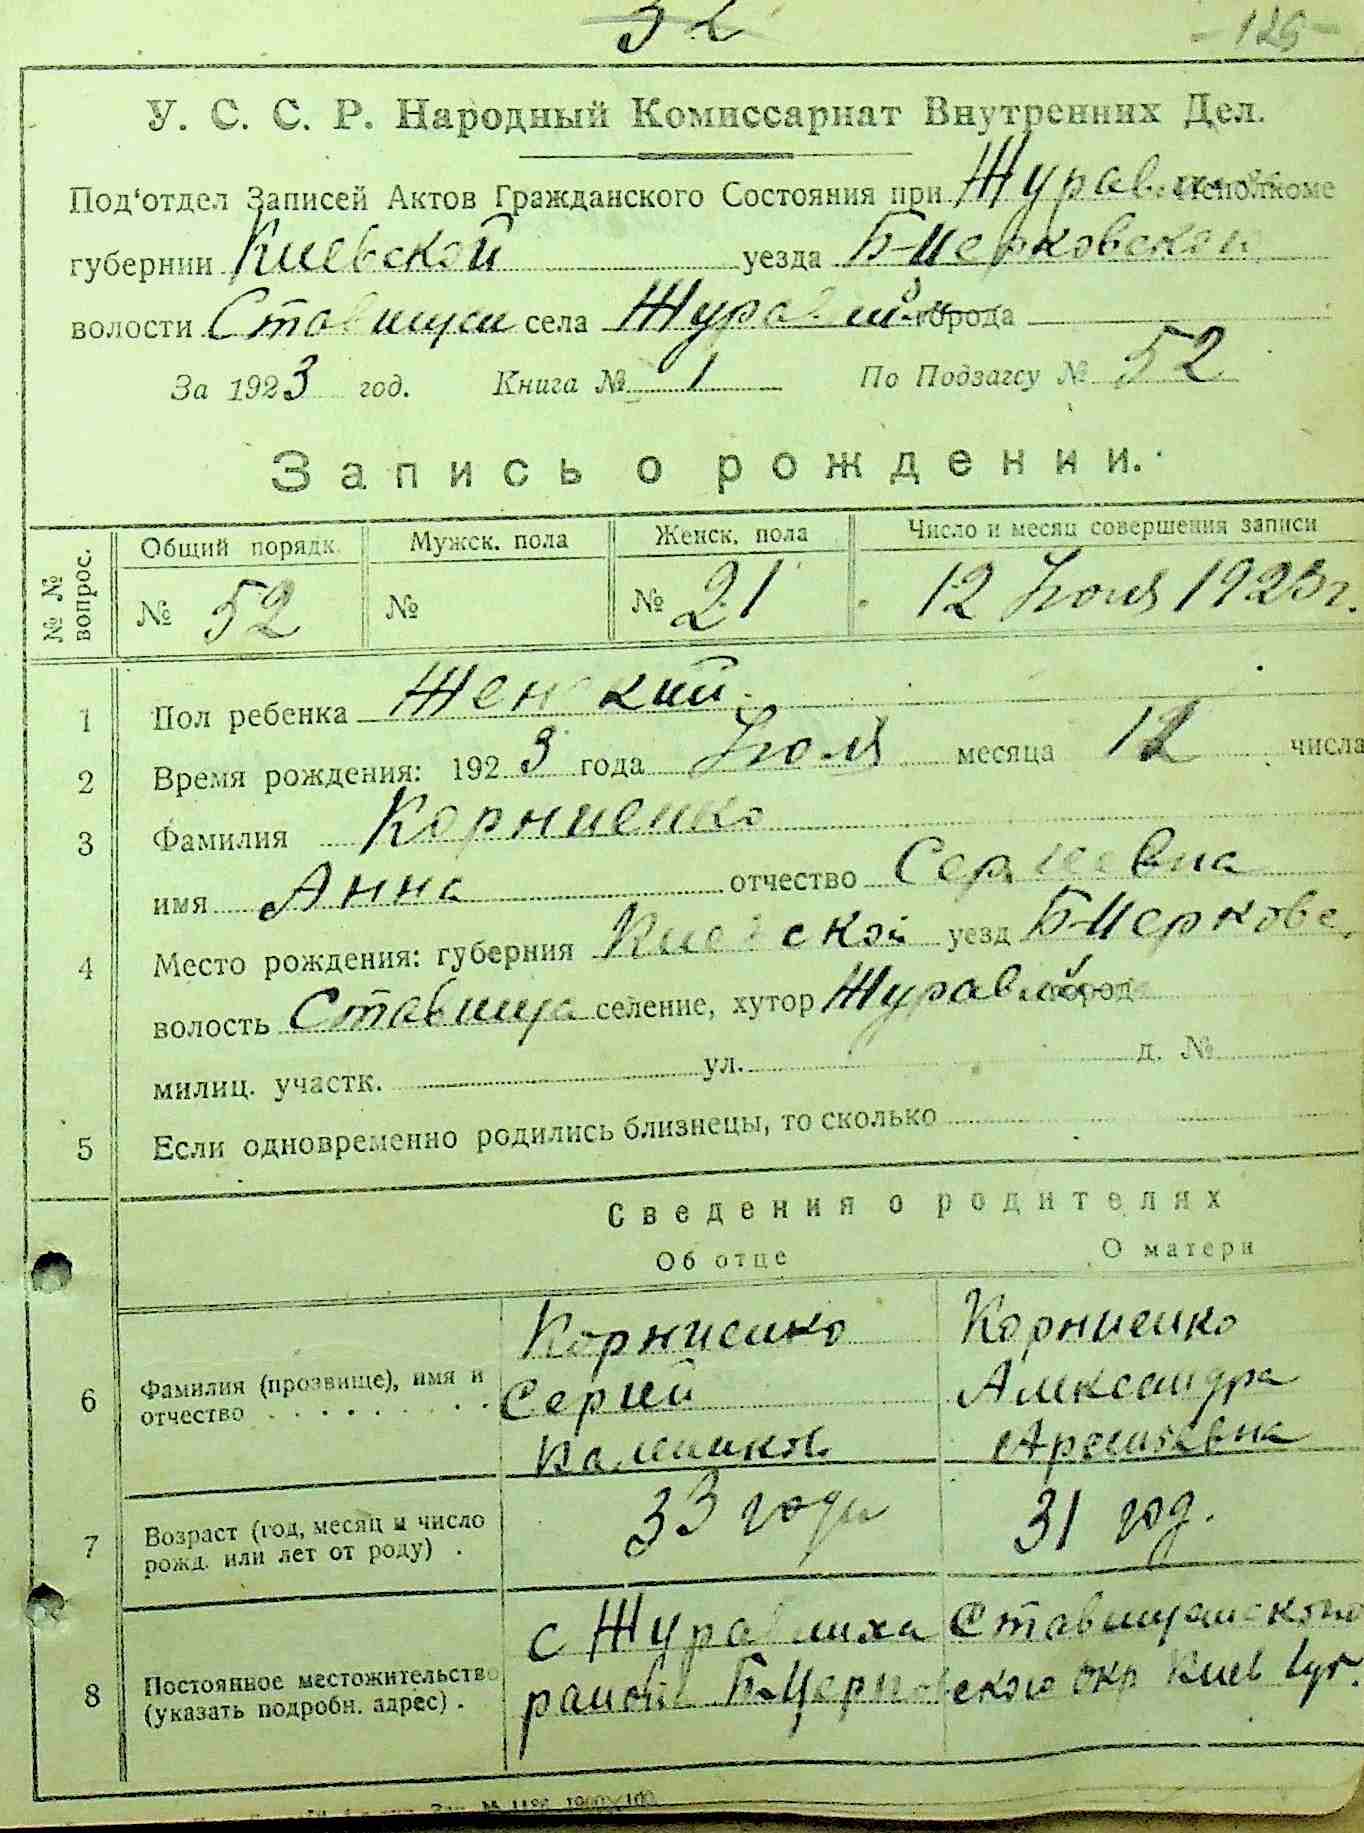 52
- 129 -
У. С. С. Р. Народный Комиссариат Внутренних Дел.
Под‘отдел Записей Актов Гражданского Состояния при Исполкоме
губернии Киевской уезда Б-Церковского
волости Ставищи села города
За 1923 год. Книга № 1 По Подзагсу № 52
Запись о рождении.
№ № вопрос.
Общий порядк. Мужск. пола Женск. пола Число и месяц совершения записи
№ 52 № № 21 12 Июля 1923 г.
1 Пол ребенка Женский
2 Время рождения: 1923 года Июля месяца 12 числа
3 Фамилия Корниенко
имя Анна отчество Сергиевна
4 Место рождения: губерния Киевской уезд Б-Церковс.
волость Ставища селение, хутор город
милиц. участк. ул. д. №
5 Если одновременно родились близнецы, то сколько
Сведения о родителях
Об отце О матери
6 Фамилия (прозвище), имя и
отчество
Корниенко
Сергий
Корниенко
Александра
Арсеньевна
7 Возраст (год, месяц и число
рожд. или лет от роду) .
33 годи 31 год.
8 Постоянное местожительство
(указать подробн. адрес) .
с Журавлиха Ставищанского
района Б-Церковского окр Киев губ.